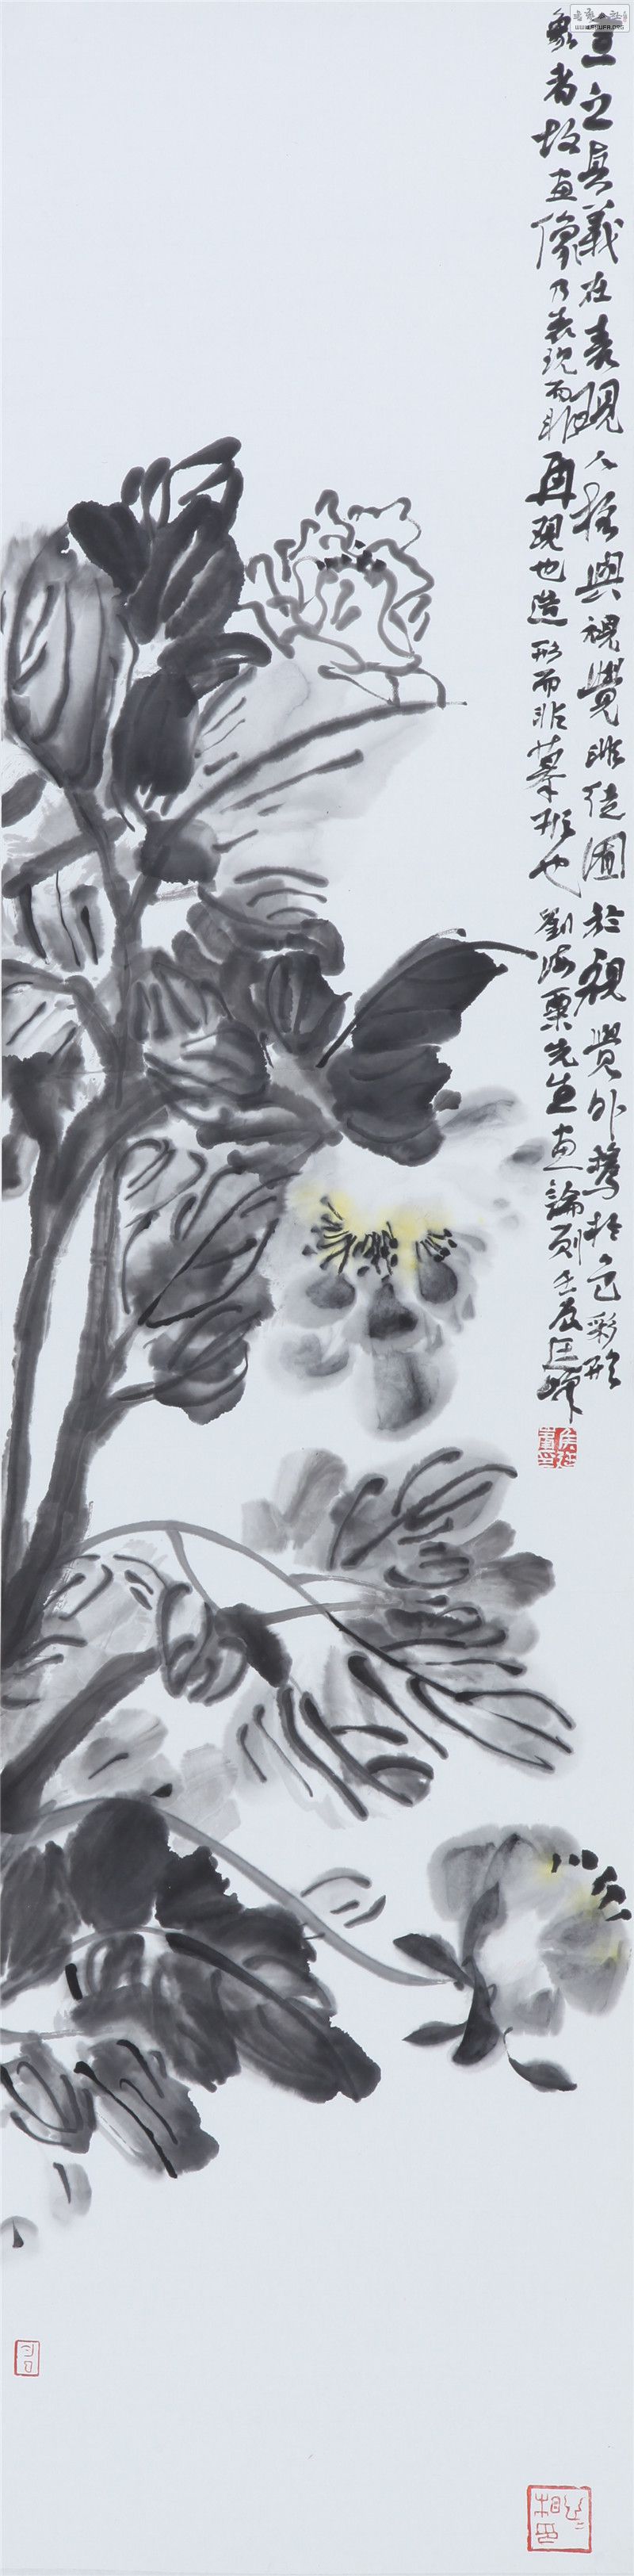 画之真義在表現人格與視覺非徒囿於視覺外鶩於色彩形
象者故画像乃表現而非再現也造形而非摹形也劉海粟先生画論則壬辰廷峰
WWW.SHUFA.ORG